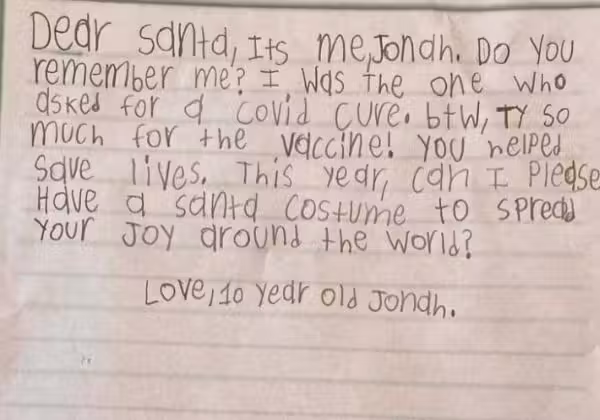 Dear santa, Its me, Jonah. Do you
remember me? I was the one who
asked for a covid cure. btw, TY so
much for the vaccine! you helped
save lives. This year, can I please
Have a santa costume to spread
your joy around the world?
Love, 10 year old Jonah.